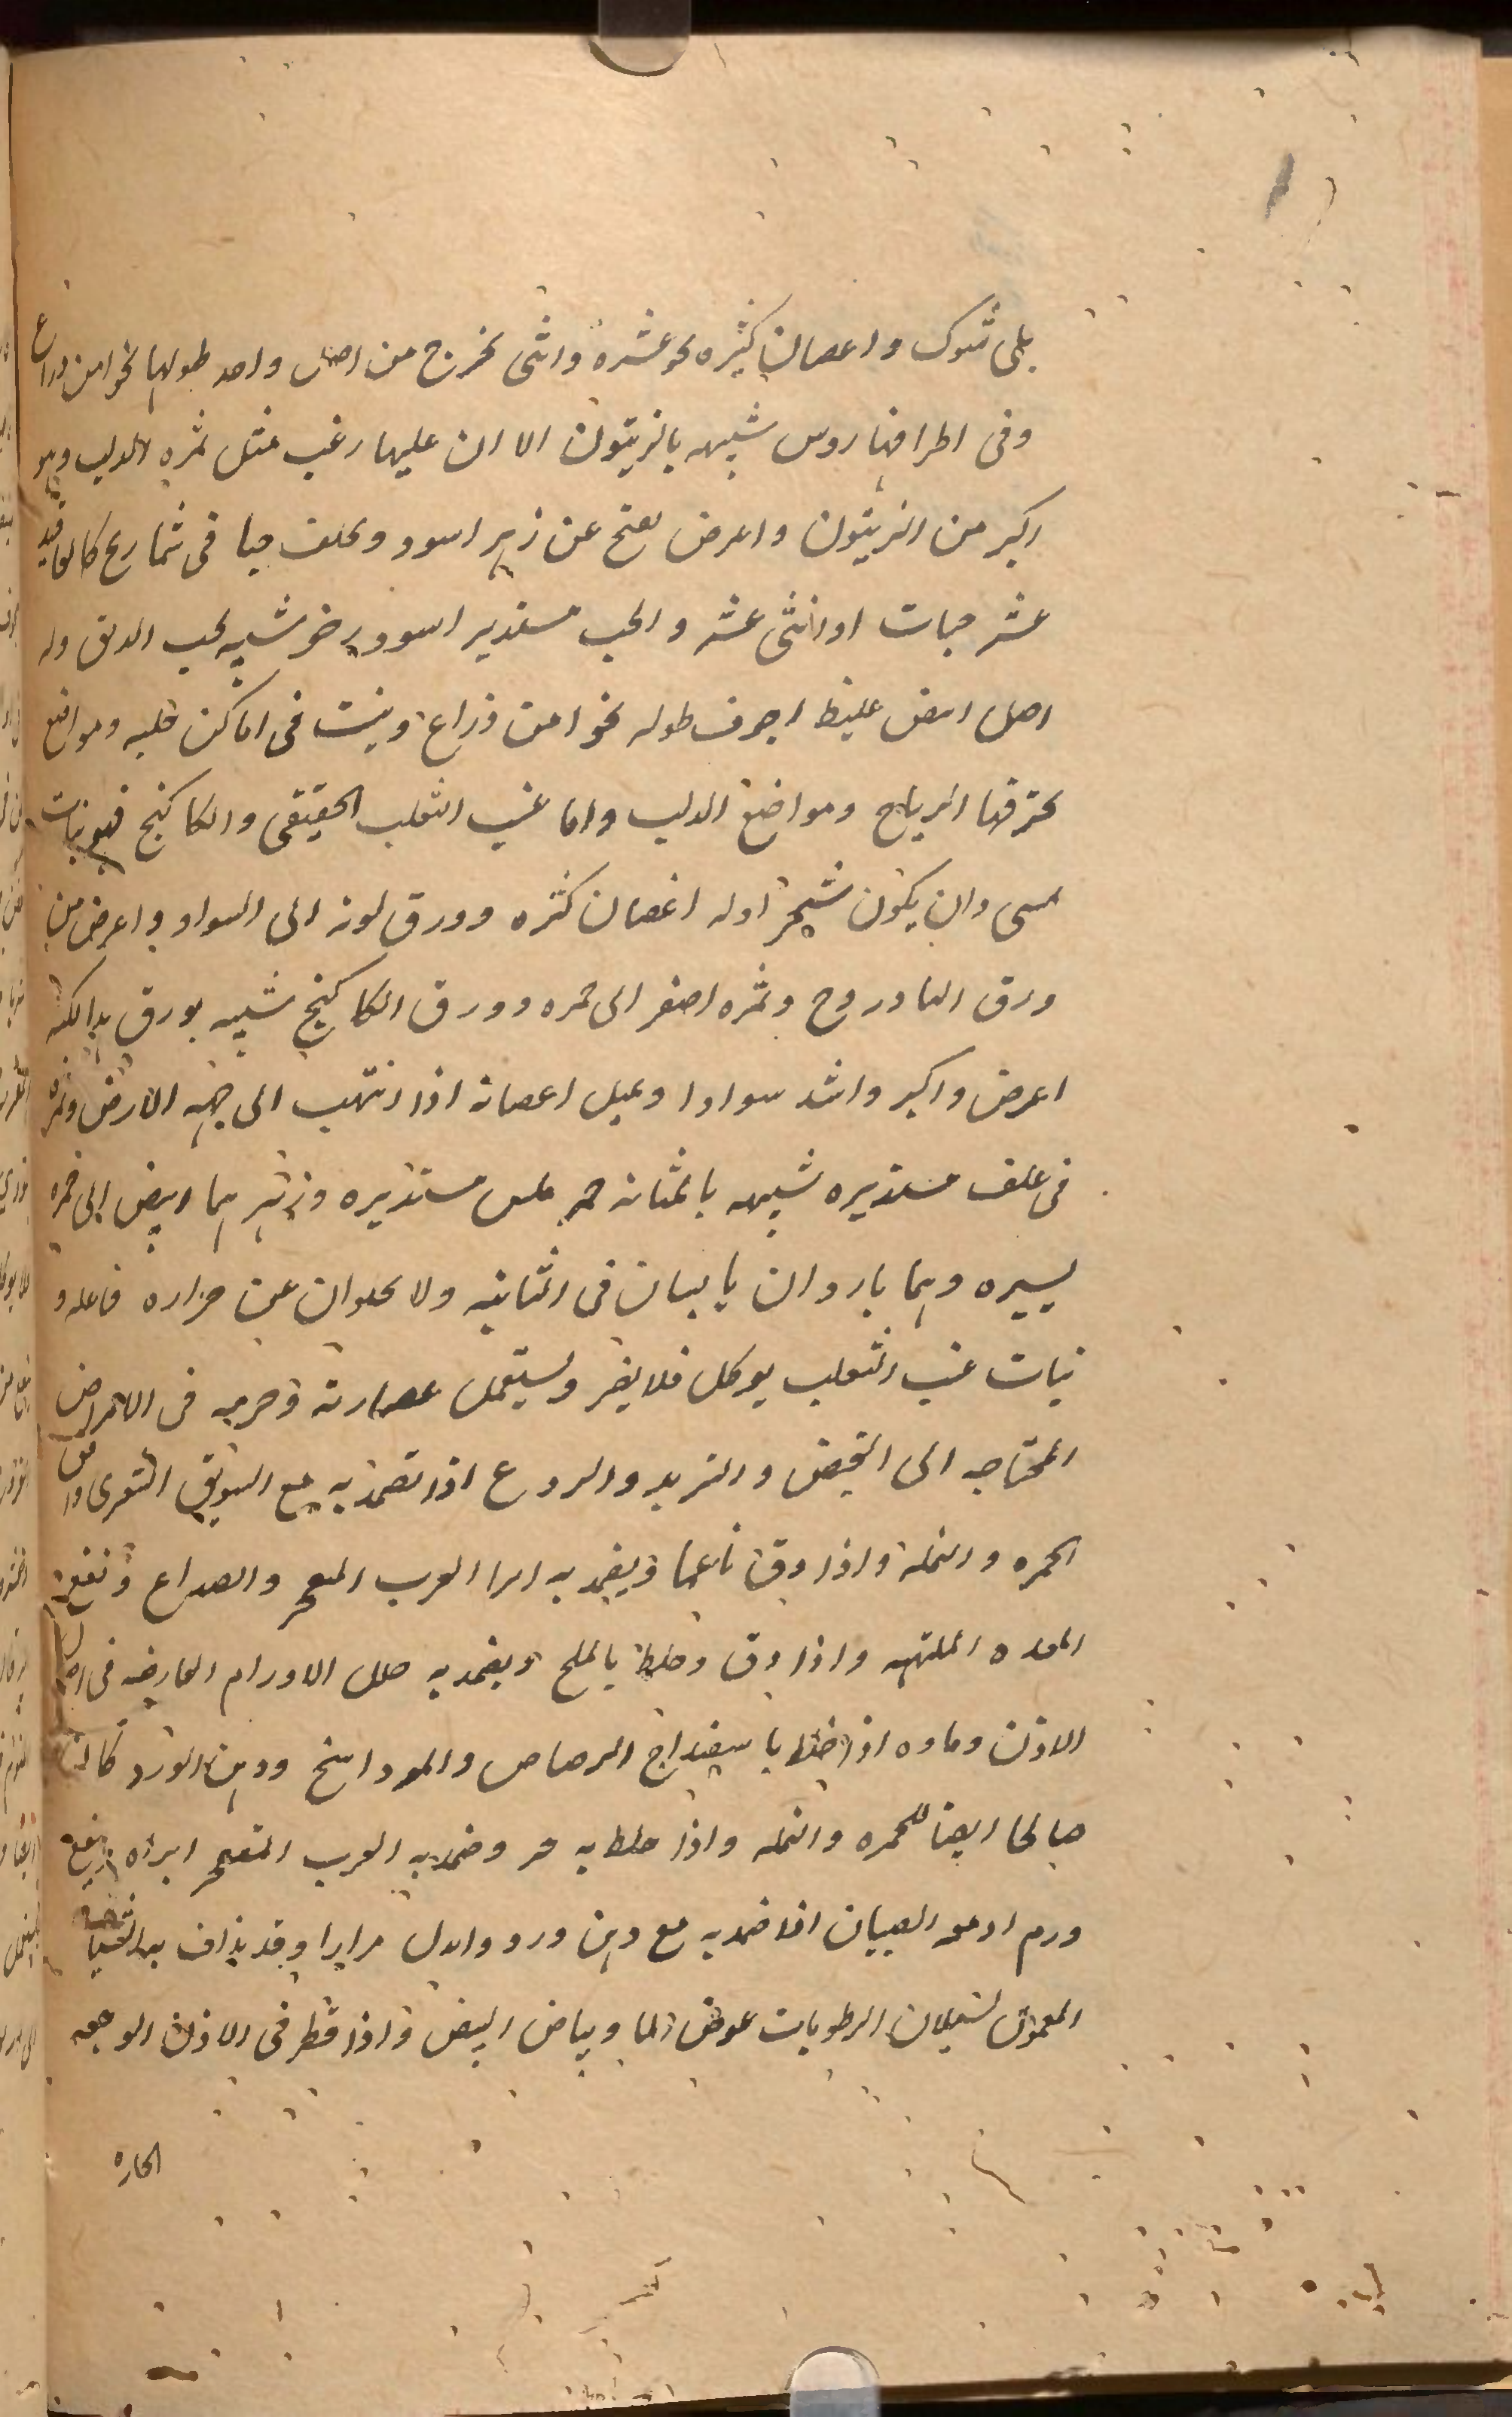 بلى شوك واعصان كثيره نحو عشره واثنى نخرج من اصل واحد طولها نحوا من ذراع
وفى اطرافها روس شبيهه بالزيتون الا ان عليها زغب مثل ثمره الدلب وهو
اكبر من الزيتون واعرض يفتح عن زهر اسود ويخلف حبا فى شماريخ كالعناقيد
عشر حبات او اثنى عشر والحب مستدير اسود رخو شبيه بحب الدبق وله
اصل ابيض غليظ اجوف طوله نحوا من ذراع وينبت فى اماكن جبليه ومواضع
تخرقها الرياح ومواضع الدلب واما عنب الثعلب الحقيقى والكاكنج فهو نبات
وان يكون شجرا وله اغصان كثره وورق لونه الى السواد واعرض من
ورق البادروج وثمره اصفر الى حمره وورق الكاكنج شبيه بورق هذا لكنه
اعرض واكبر واشد سوادا وتميل اعصانه اذا انتهت الى جهه الارض وثمره
فى غلف مستديره شبيهه بالمثانه حمر ملس مستديره وزهرهما ابيض الى حمره
يسيره وهما باردان يابسان فى الثانيه ولا يخلوان عن حراره فاعله و
نبات عنب الثعلب يوكل فلا يضر ويستعمل عصارته وجرمه فى الامراض
المحتاجه الى القبض والتبريد والردع اذا تضمد به مع السويق الشعرى وافق
الحمره والنمله واذا دق ناعما ويضمد به ابرا الغرب المنفجر والصداع ونفع
المعده الملتهبه واذا دق وخلط بالملح ويضمد به حلل الاورام العارضه فى اصل
الاذن وماوه اذا خلط باسفيداج الرصاص والمرداسنج ودهن الورد كان
صالحا ايضا للحمره والنمله واذا خلط به خبز وضمد به الغرب المنفجر ابراه وينفع
ورم ادمغه الصبيان اذا ضمد به مع دهن ورد وابدل مرارا وقد يذاف به الشيافات
المعموله لسيلان الرطوبات عوض الما وبياض البيض واذا قطر فى الاذن الوجعه
الحاره